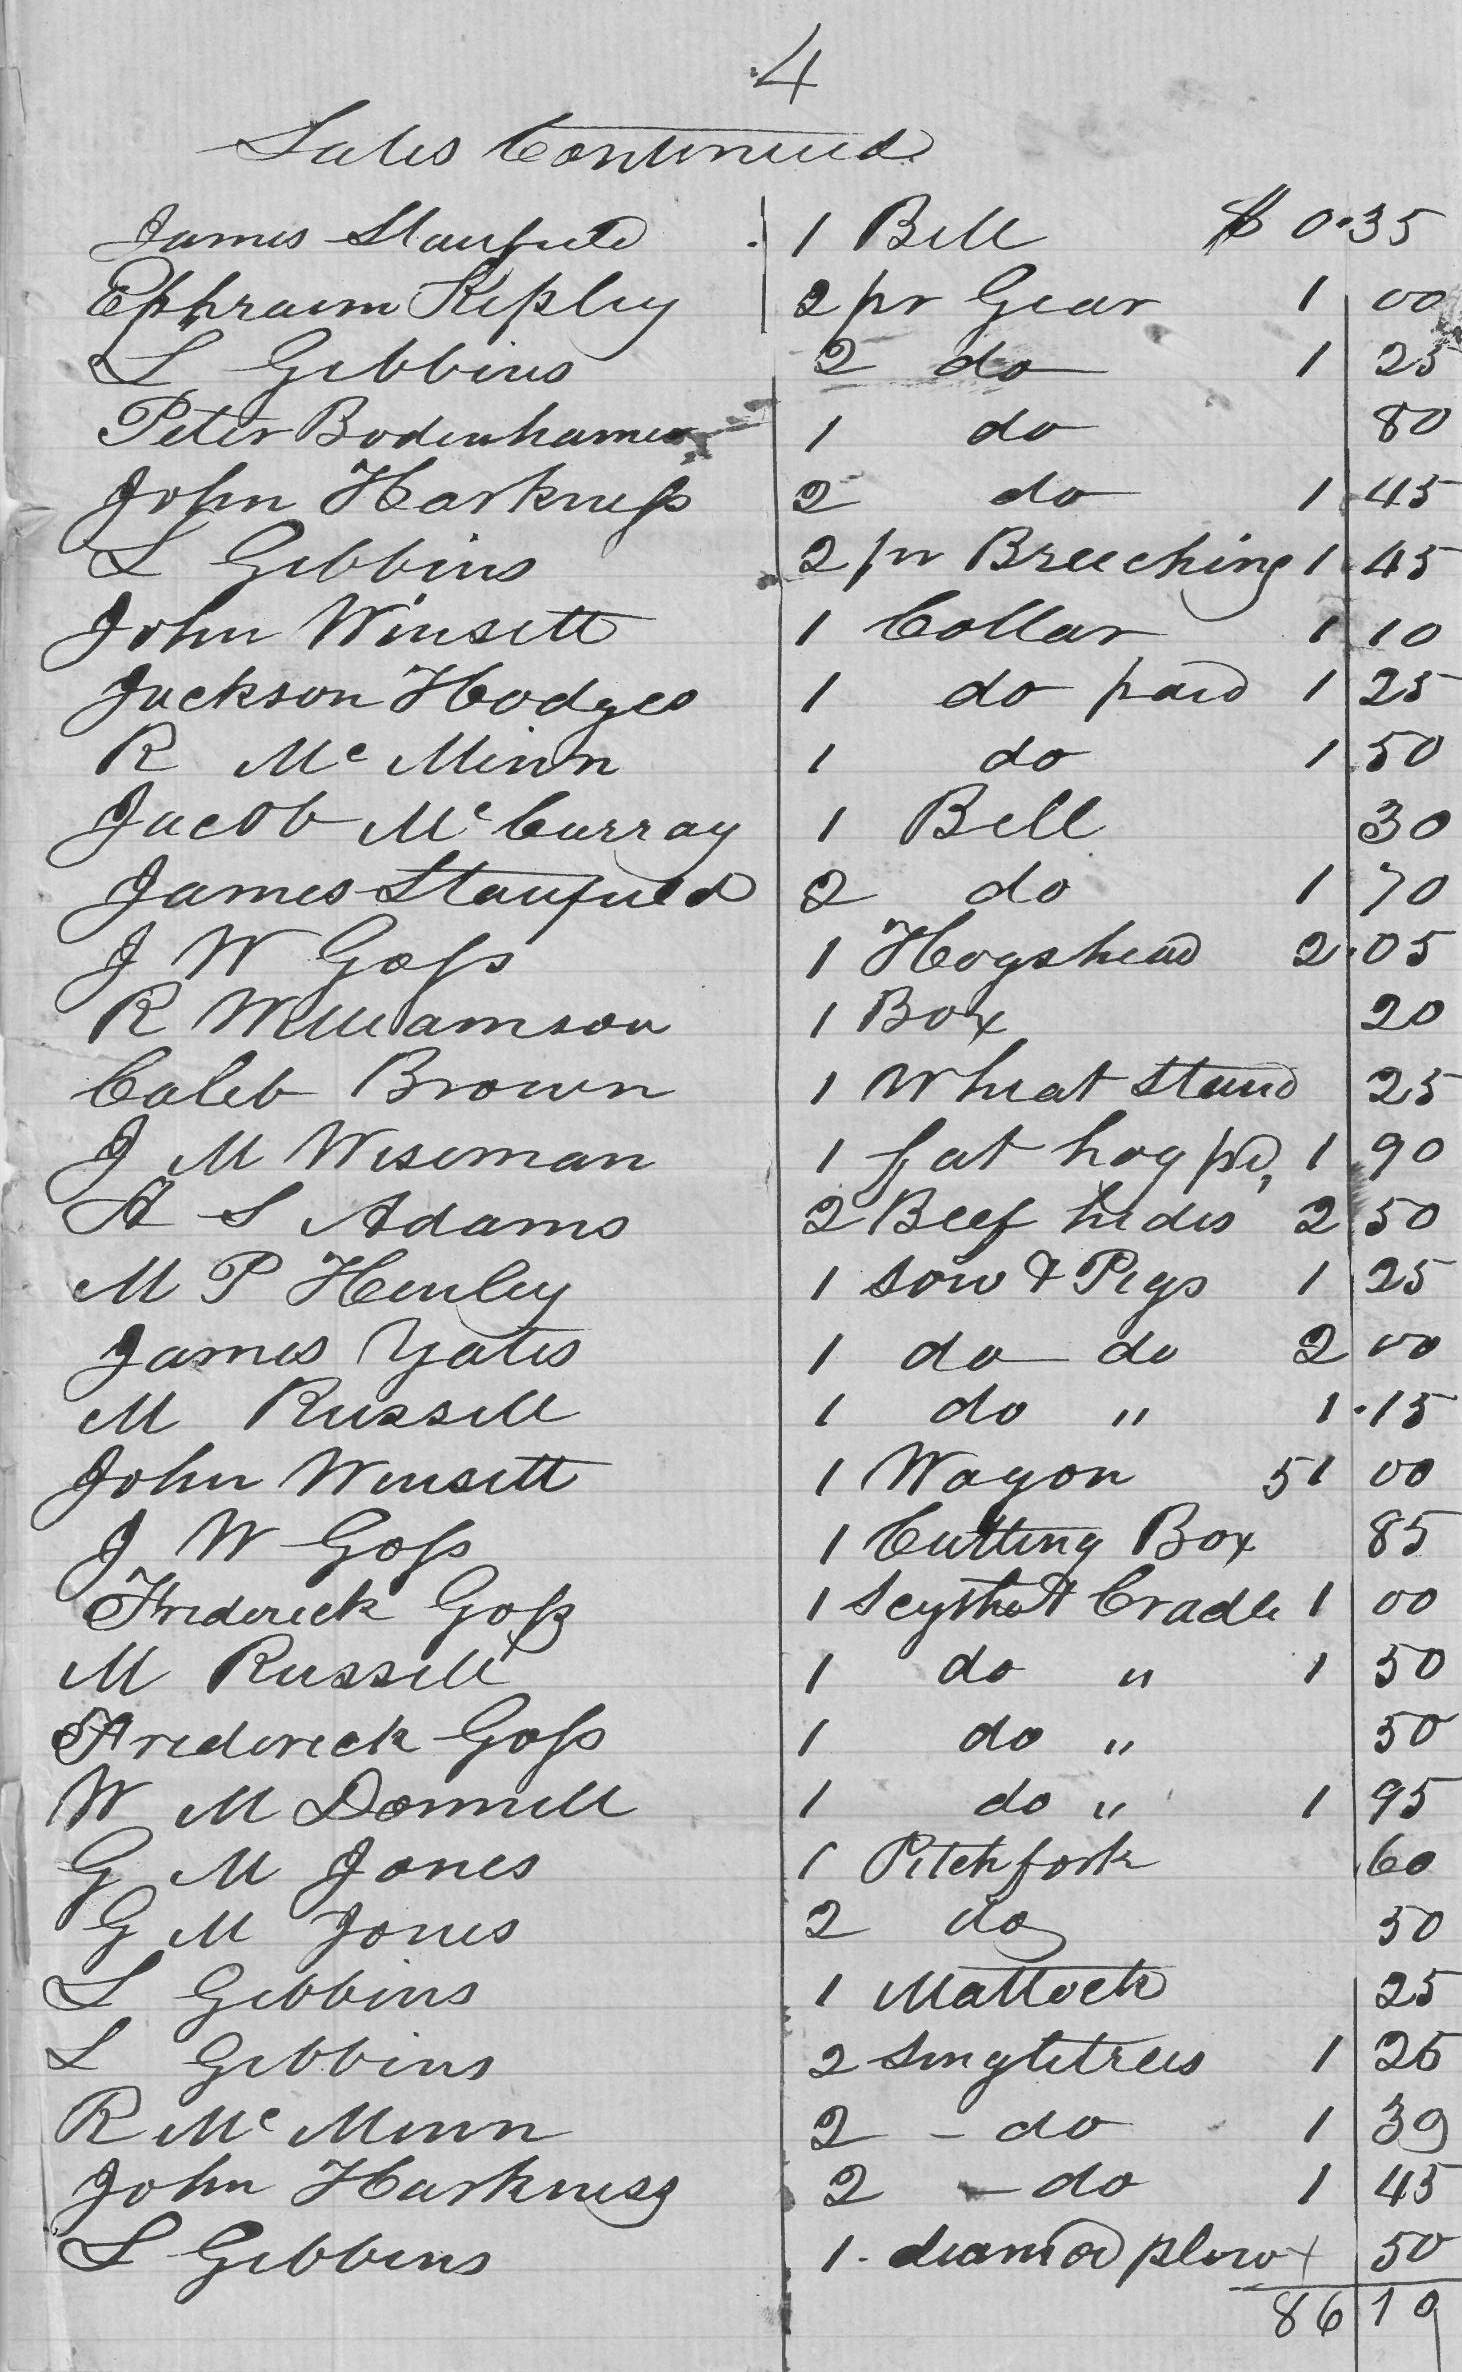 4
Sales Continued
James Stanfield 1 Bell $ 0.35
Ephraim Kepley 2 pr Gear 1 00
L Gibbins 2 do 1 25
Peter Bodenhamer 1 do 80
John Harkness 2 do 1 45
L Gibbins 2 pr Breeching 1 45
John Winsett 1 Collar 1 10
Jackson Hodges 1 do paid 1 25
R Mc Minn 1 do 1 50
Jacob McCurray 1 Bell 30
James Stanfield 2 do 1 70
J W Goss 1 Hogshead 2.05
R Williamson 1 Box 20
Caleb Brown 1 Wheat Stand 25
J M Wiseman 1 fat hog pd, 1 90
A S Adams 2 Beef hides 2 50
M P Henley 1 Sow & Pigs 1 25
James Yates 1 do do 2 00
M Russell 1 do " 1.15
John Winsett 1 Wagon 51 00
J W Goss 1 Cutting Box 85
Frederick Goss 1 Scythe & Cradle 1 00
M Russell 1 do " 1 50
Frederick Goss 1 do " 50
W M Donnell 1 do " 1 95
G M Jones 1 Pitchfork 60
G M Jones 2 do 50
L Gibbins 1 Mattock 25
L Gibbins 2 Singletrees 1 25
R Mc Minn 2 - do 1 39
John Harkness 2 - do 1 45
L Gibbins 1. diamod plow 50
86 19